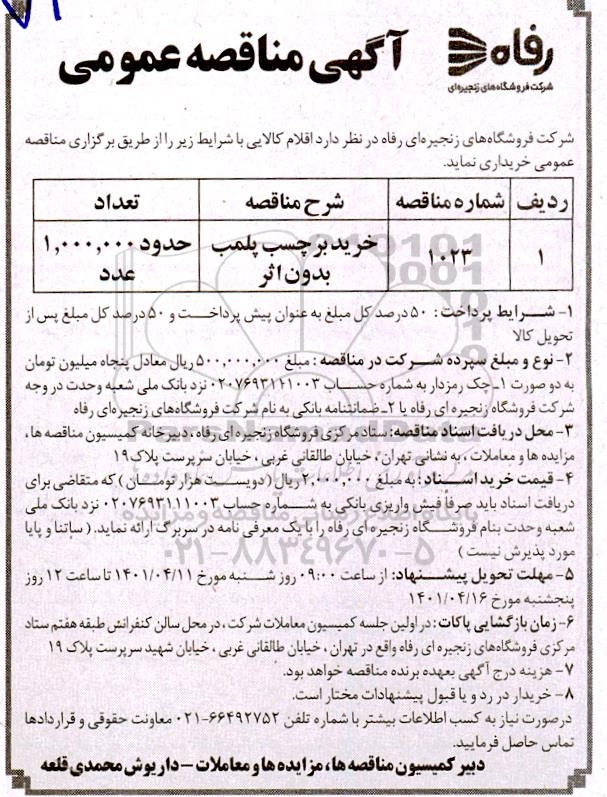 رفاه
شرکت فروشگاه‌های زنجیره‌ای
آگهی مناقصه عمومی
شرکت فروشگاه‌های زنجیره‌ای رفاه در نظر دارد اقلام کالایی با شرایط زیر را از طریق برگزاری مناقصه
عمومی خریداری نماید.
ردیف شماره مناقصه شرح مناقصه تعداد
۱ ۱۰۲۳ خرید برچسب پلمب حدود ۱,۰۰۰,۰۰۰
بدون اثر عدد
۱- شرایط پرداخت : ۵۰ درصد کل مبلغ به عنوان پیش پرداخت و ۵۰ درصد کل مبلغ پس از
تحویل کالا
۲- نوع و مبلغ سپرده شرکت در مناقصه : مبلغ ۵۰۰,۰۰۰,۰۰۰ ریال معادل پنجاه میلیون تومان
به دو صورت ۱- چک رمزدار به شماره حساب ۰۲۰۷۶۹۳۱۱۱۰۰۳ نزد بانک ملی شعبه وحدت در وجه
شرکت فروشگاه زنجیره ای رفاه یا ۲- ضمانتنامه بانکی به نام شرکت فروشگاه‌های زنجیره‌ای رفاه
۳- محل دریافت اسناد مناقصه: ستاد مرکزی فروشگاه زنجیره ای رفاه ، دبیرخانه کمیسیون مناقصه ها ،
مزایده ها و معاملات ، به نشانی تهران ، خیابان طالقانی غربی ، خیابان سرپرست پلاک ۱۹
۴- قیمت خرید اسناد : به مبلغ ۲,۰۰۰,۰۰۰ ریال ( دویست هزار تومان ) که متقاضی برای
دریافت اسناد باید صرفاً فیش واریزی بانکی به شماره حساب ۰۲۰۷۶۹۳۱۱۱۰۰۳ نزد بانک ملی
شعبه وحدت بنام فروشگاه زنجیره ای رفاه را با یک معرفی نامه در سربرگ ارائه نماید. ( ساتنا و پایا
مورد پذیرش نیست )
۵- مهلت تحویل پیشنهاد: از ساعت ۰۹:۰۰ روز شنبه مورخ ۱۴۰۱/۰۴/۱۱ تا ساعت ۱۲ روز
پنجشنبه مورخ ۱۴۰۱/۰۴/۱۶
۶- زمان بازگشایی پاکات : در اولین جلسه کمیسیون معاملات شرکت ، در محل سالن کنفرانس طبقه هفتم ستاد
مرکزی فروشگاه‌های زنجیره ای رفاه واقع در تهران ، خیابان طالقانی غربی ، خیابان شهید سرپرست پلاک ۱۹
۷- هزینه درج آگهی بعهده برنده مناقصه خواهد بود.
۸- خریدار در رد و یا قبول پیشنهادات مختار است.
درصورت نیاز به کسب اطلاعات بیشتر با شماره تلفن ۶۶۴۹۲۷۵۲-۰۲۱ معاونت حقوقی و قراردادها
تماس حاصل فرمایید.
دبیر کمیسیون مناقصه ها، مزایده ها و معاملات - داریوش محمدی قلعه
ParsNamadData
۰۲۱-۸۸۳۴۹۶۷۰-۵